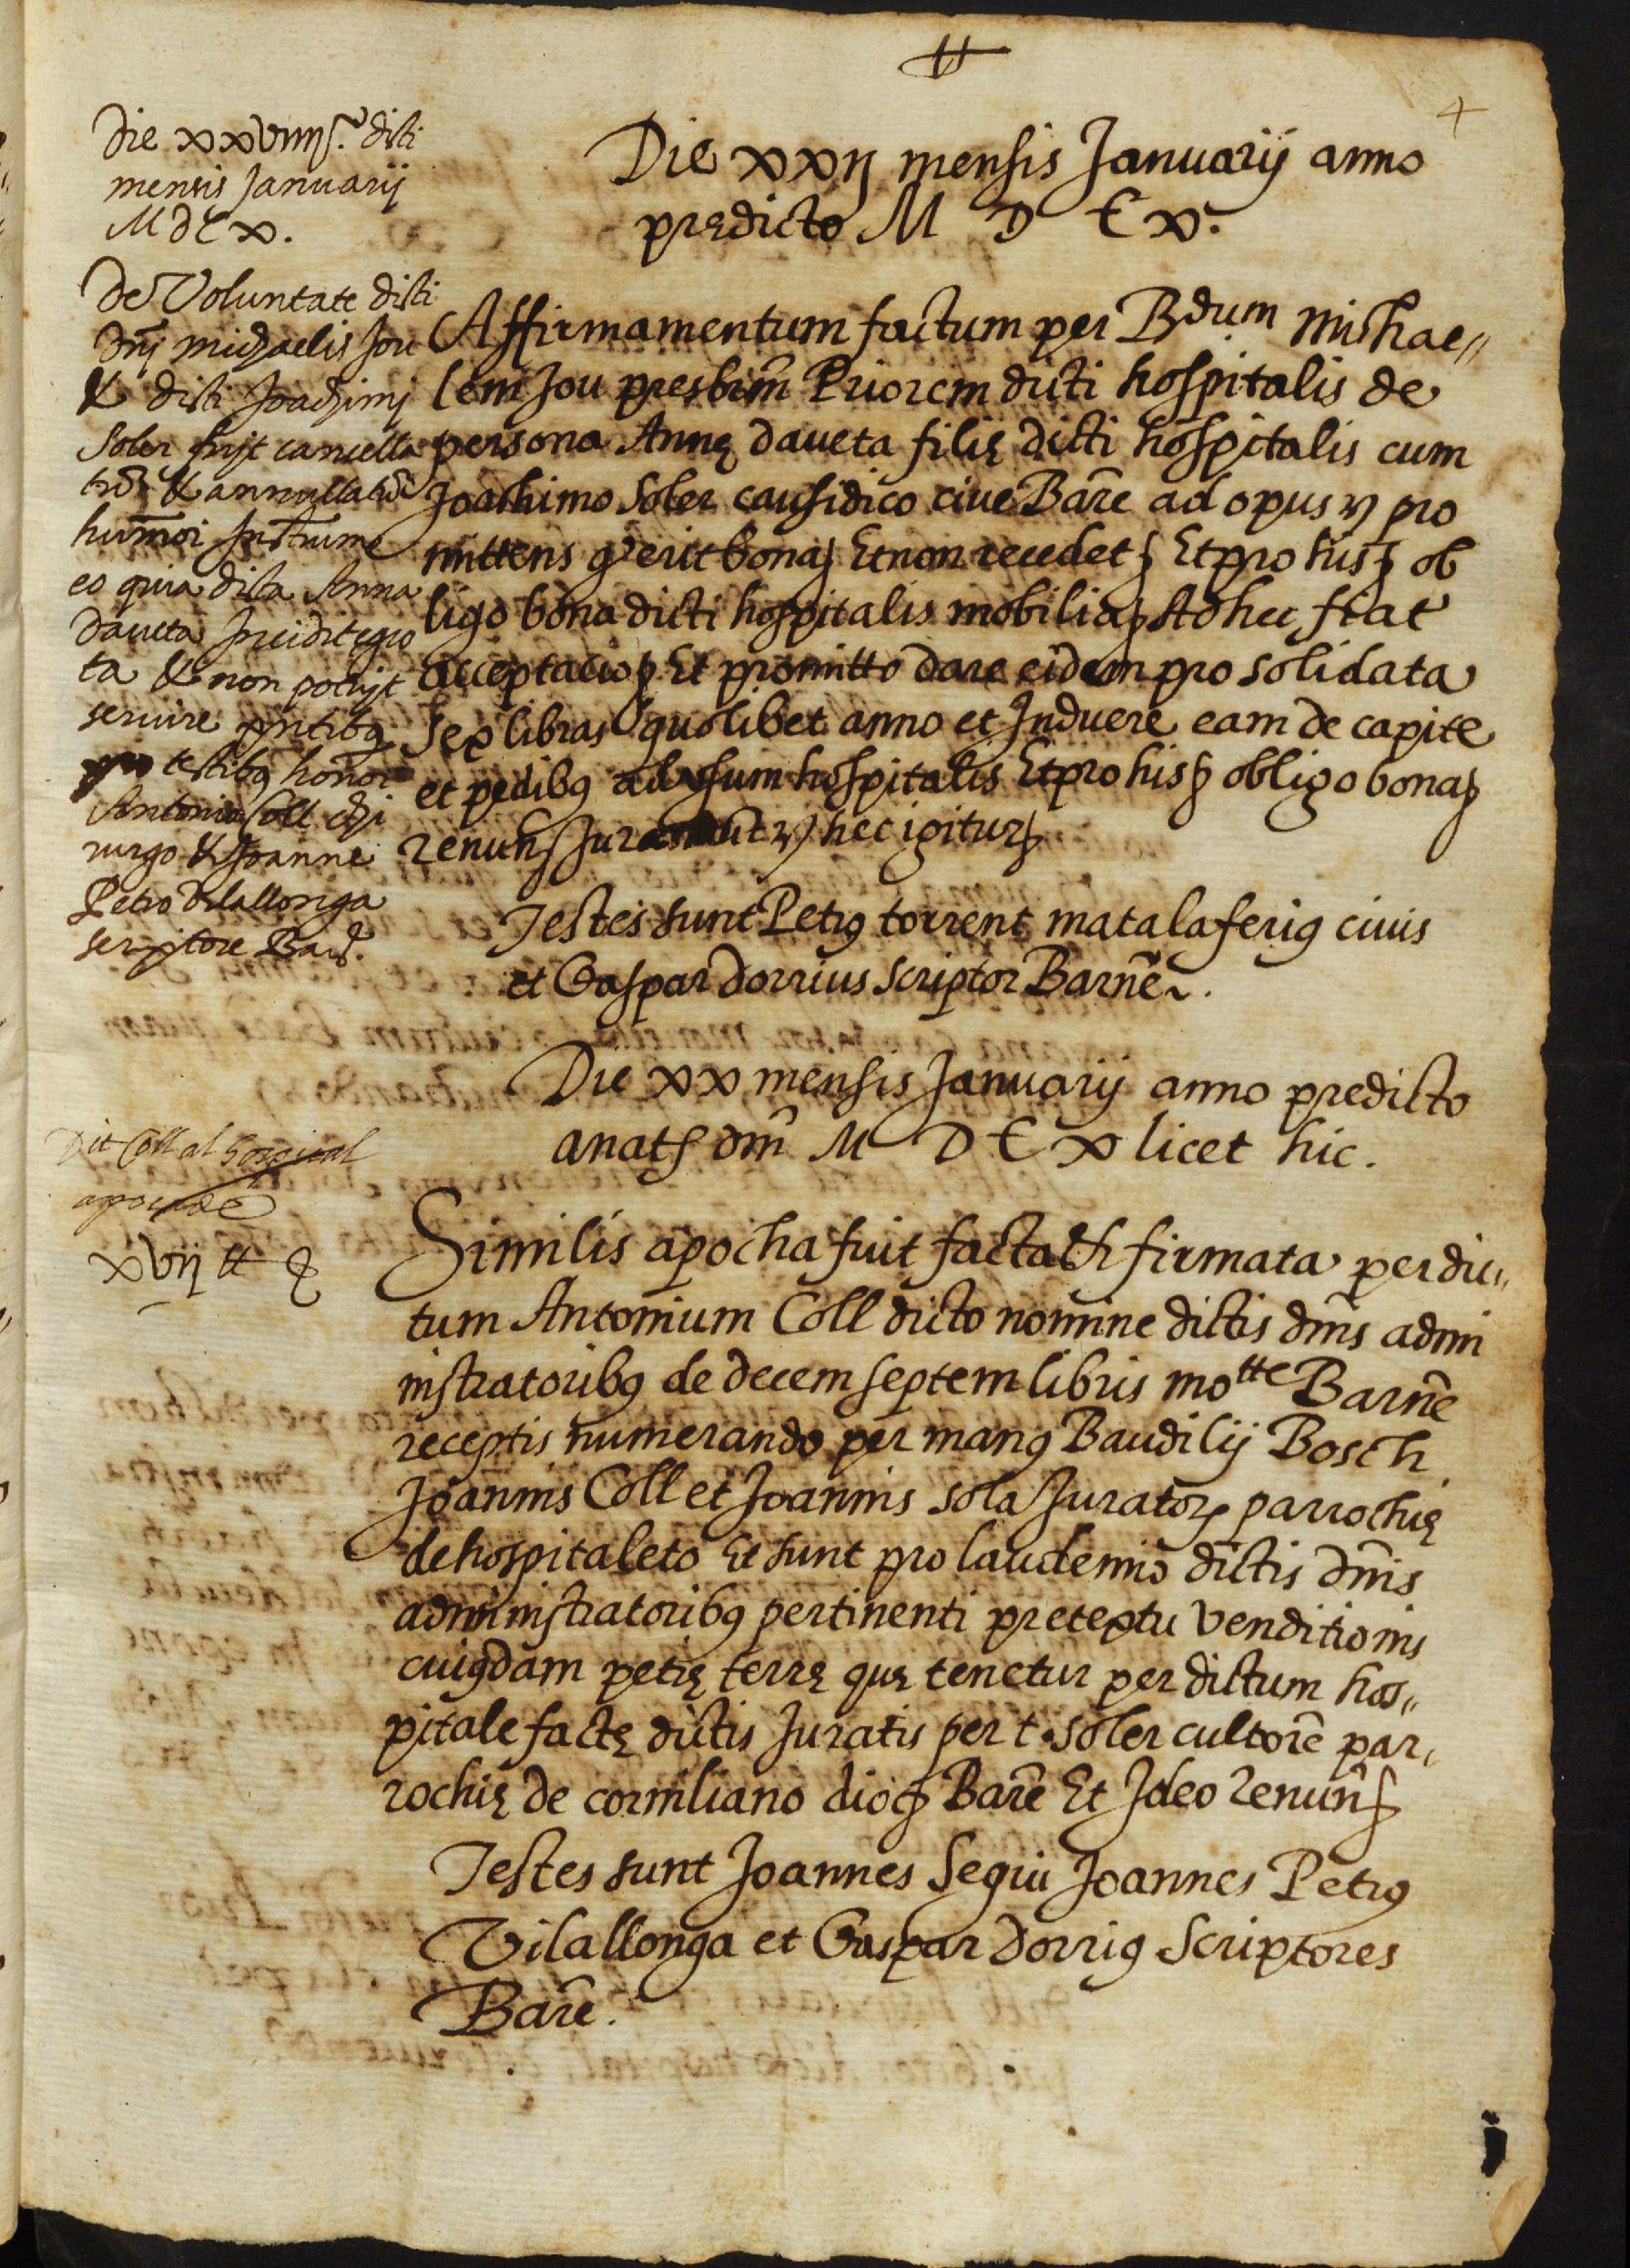 4
Die xxij mensis Januarij anno
prędicto M D C x.
Die xxviiij. dicti
mensis Januarij
M d C x.
De Voluntate dicti
dnj michaelis Jou
& dicti Joachimj
Soler fujt cancella
tũ & annullatũ
humõi Instrume
eo quia dicta Anna
daueta Incidit egro
ta & non potujt
seruire pntibꝯ
pro testibꝯ honor
Antonio Coll chi
rurgo & Joanne
Petro Vilallonga
scriptore Barc.
Affirmamentum factum per Rdum Michae„
lem Jou presbrm Priorem dicti hospitalis de
persona Annę daueta filię dicti hospitalis cum
Joachimo Soler causidico ciue Barẽ ad opus pro
mittens q erit bona Et non recedet Et pro his ob
ligo bona dicti hospitalis mobilia Ad hec fiat
acceptacio Et promitto dare eidem pro solidata
sex libras quolibet anno et Induere eam de capite
et pedibꝯ ad vsum hospitalis Et pro his obligo bona
renun hec igitur
Testes sunt Petrꝯ torrent matalaferiꝯ ciuis
et Gaspar dorrius scriptor Barnẽ.
Die xx mensis Januarij anno predicto
anat dñi M D C x licet hic.
Dit Coll al hospital
apocade
xvij ₶
Similis apocha fuit facta & firmata per dic„
tum Antonium Coll dicto nomine dictis dñis admi
nistratoribꝯ de decem septem libris motte Barnẽ
receptis numerando per manꝯ Baudilij Bosch
Joannis Coll et Joannis sola Jurator parrochię
de hospitaleto Et sunt pro laudemio dictis dñis
administratoribꝯ pertinenti pretextu venditionis
cuiꝯdam petię terrę quę tenetur per dictum hos„
pitale factę dictis Juratis per t. soler cultorẽ par„
rochię de corniliano dioc Barẽ Et Ideo renun
Testes sunt Joannes Segui Joannes Petrꝯ
Vilallonga et Gaspar dorriꝯ scriptores
Barẽ.